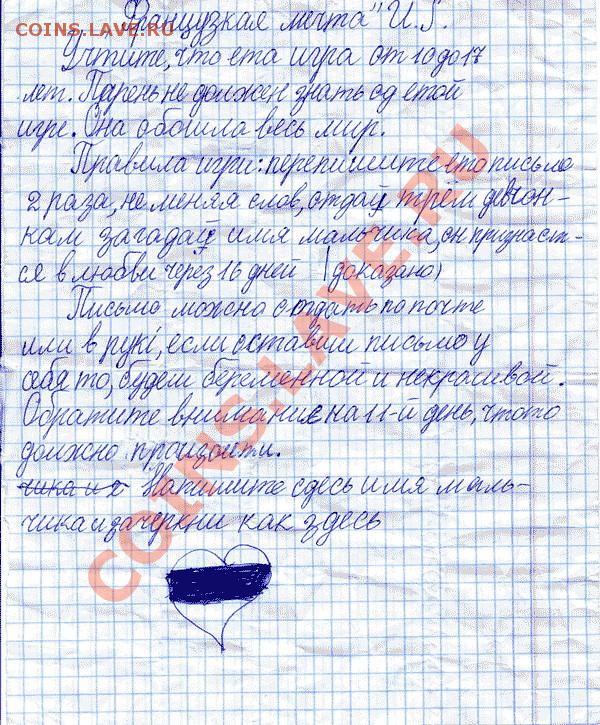 COINS.LAVE.RU
Французкая мечта" U.S.
Учтите, что ета игра от 10 до 17
лет. Парень не должен знать од етой
игре. Она обошла весь мир.
Правила игри: перепишите ето письмо
2 раза, не меняя слов, отдай трём девчон-
кам загадай имя мальчика, он признаєт-
ся в любви через 16 дней (доказано)
Письмо можно отдать по почте
или в рукі, если оставиш письмо у
себя то, будеш беременной и некрасивой.
Обратите внимание на 11-й день, что то
должно произойти.
чика и з Напишите сдесь имя маль-
чика и зачеркни как здесь
COINS.LAVE.RU